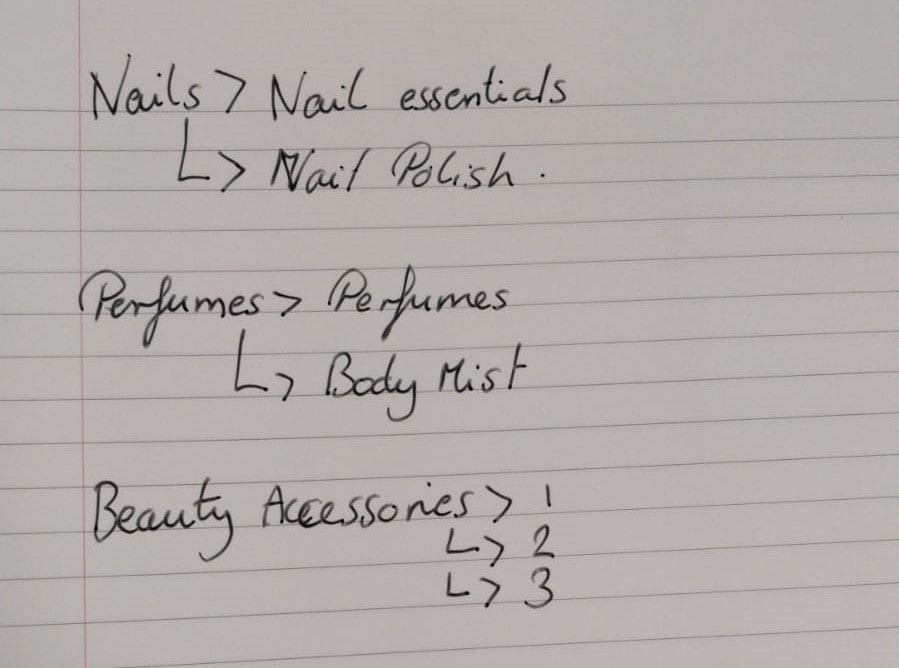 Nails > Nail essentials
↳ Nail Polish.
Perfumes > Perfumes
↳ Body Mist
Beauty Accessories > 1
↳ 2
↳ 3